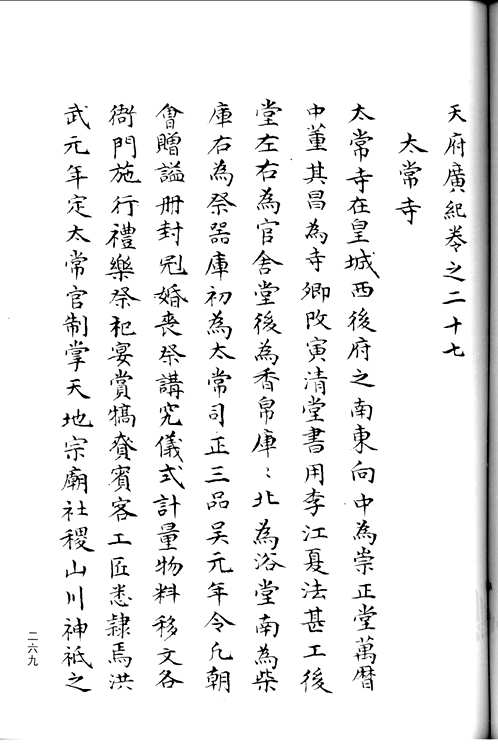 天府廣紀卷之二十七
太常寺
太常寺在皇城西後府之南東向中為崇正堂萬曆
中董其昌為寺卿改寅清堂書用李江夏法甚工後
堂左右為官舍堂後為香帛庫﹕北為浴堂南為柴
庫右為祭器庫初為太常司正三品吳元年令凡朝
會贈謚册封冠婚喪祭講究儀式計量物料移文各
衙門施行禮樂祭祀宴賞犒賚賓客工匠悉隸焉洪
武元年定太常官制掌天地宗廟社稷山川神祇之
二六九